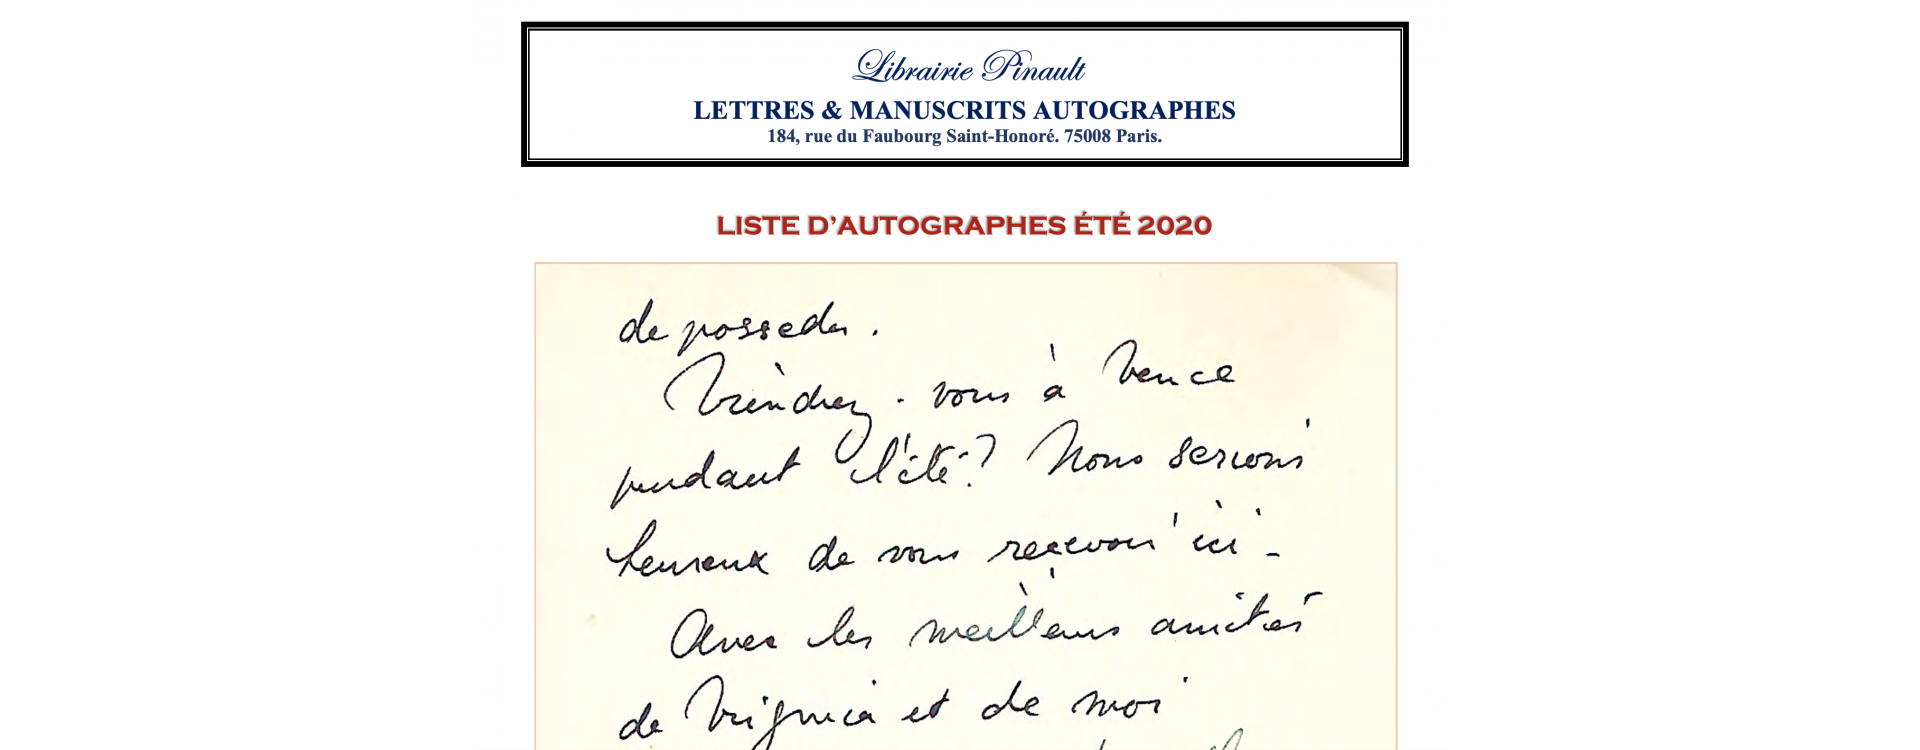 Librairie Pinault
LETTRES & MANUSCRITS AUTOGRAPHES
184, rue du Faubourg Saint-Honoré. 75008 Paris.
LISTE D’AUTOGRAPHES ÉTÉ 2020
de posseder.
Viendrez-vous à Vence
pendant l'été? Nous serions
heureux de vous recevoir ici -
Avec les meilleurs amitiés
de et de moi